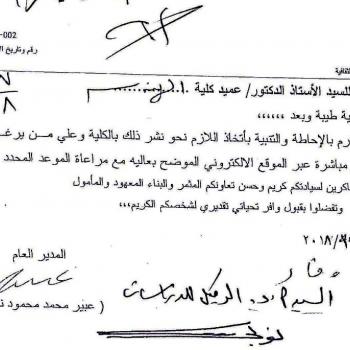 002-
رقم وتاريخ ال
ثقافية
للسيد الأستاذ الدكتور/ عميد كلية
ية طيبة وبعد ،،،،،،
رم بالإحاطة والتنبية بأتخاذ اللازم نحو نشر ذلك بالكلية وعلي من يرغـ
مباشرة عبر الموقع الالكتروني الموضح بعاليه مع مراعاة الموعد المحدد
شاكرين لسيادتكم كريم وحسن تعاونكم المثمر والبناء المعهود والمأمول
وتفضلوا بقبول وافر تحياتي تقديري لشخصكم الكريم،،،
٢٠١٨/
المدير العام
السيد أ.د. الوكيل للدراسات
( عبير محمد محمود ن